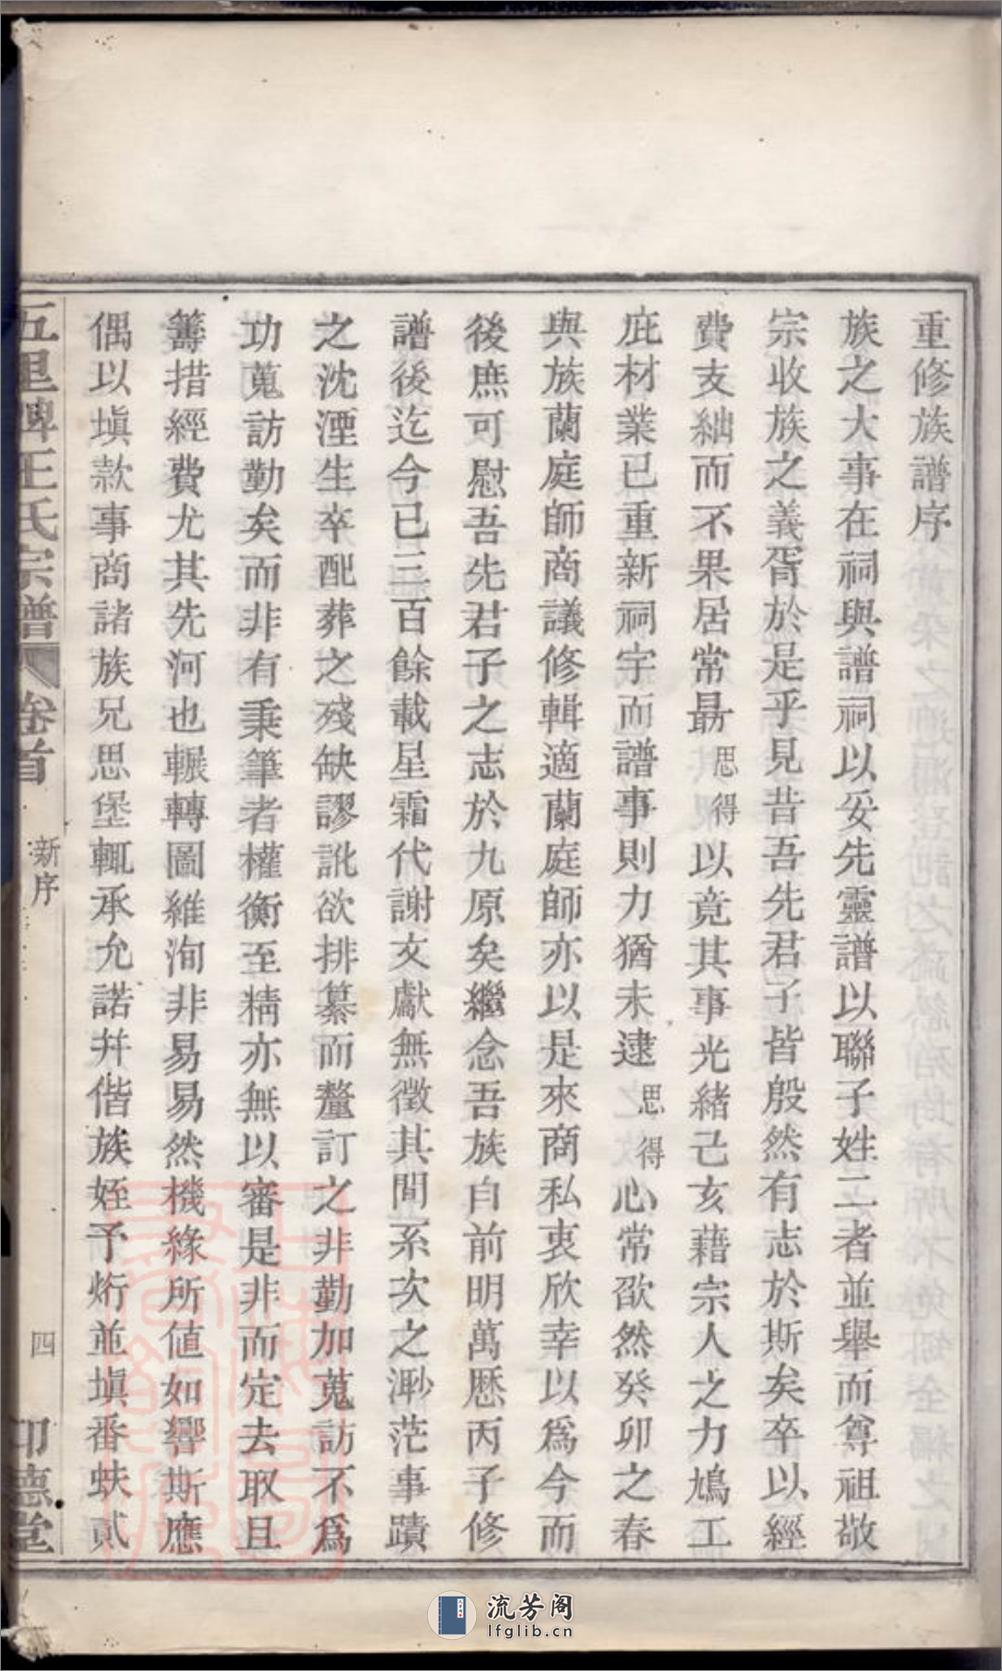 重修族譜序
族之大事在祠與譜祠以妥先靈譜以聯子姓二者並舉而尊祖敬
宗收族之義胥於是乎見昔吾先君子皆殷然有志於斯矣卒以經
費支絀而不果居常最思得以竟其事光緒己亥藉宗人之力鳩工
庇材業已重新祠宇而譜事則力猶未逮思得心常欿然癸卯之春
與族蘭庭師商議修輯適蘭庭師亦以是來商私衷欣幸以爲今而
後庶可慰吾先君子之志於九原矣繼念吾族自前明萬厯丙子修
譜後迄今已三百餘載星霜代謝文獻無徵其間系次之渺茫事蹟
之沈湮生卒配葬之殘缺謬訛欲排纂而釐訂之非勤加蒐訪不爲
功蒐訪勤矣而非有秉筆者權衡至精亦無以審是非而定去取且
籌措經費尤其先河也輾轉圖維洵非易易然機緣所値如響斯應
偶以塡款事商諸族兄思堡輒承允諾幷偕族姪予烆並塡番蚨貳
五里牌王氏宗譜
卷首
新序
四
印德堂
流芳阁
lfglib.cn